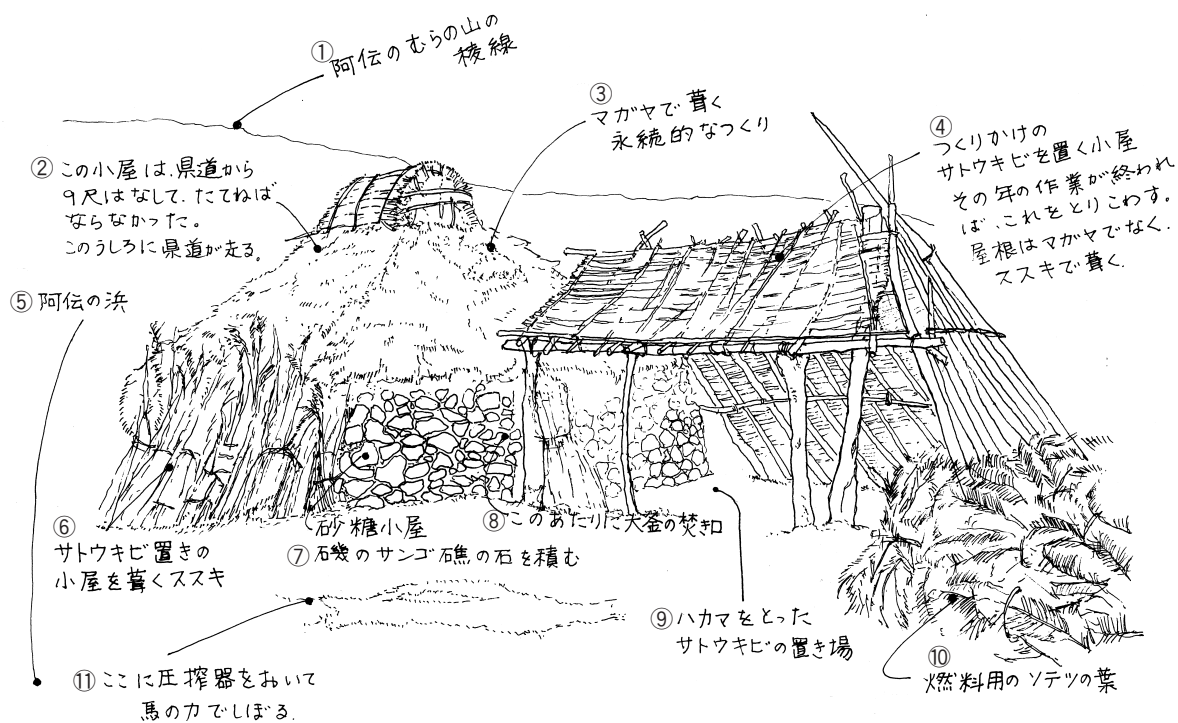 ① 阿伝のむらの山の
稜線
② この小屋は、県道から
9尺はなして、たてねば
ならなかった。
このうしろに県道が走る。
③ マガヤで葺く
永続的なつくり
④ つくりかけの
サトウキビを置く小屋
その年の作業が終われ
ば、これをとりこわす。
屋根はマガヤでなく、
ススキで葺く
⑤ 阿伝の浜
⑥
サトウキビ置きの
小屋を葺くススキ
砂糖小屋
⑦ 石磯のサンゴ礁の石を積む
⑧ このあたりに大釜の焚き口
⑨ ハカマをとった
サトウキビの置き場
⑩
燃料用のソテツの葉
⑪ ここに圧搾器をおいて
馬の力でしぼる